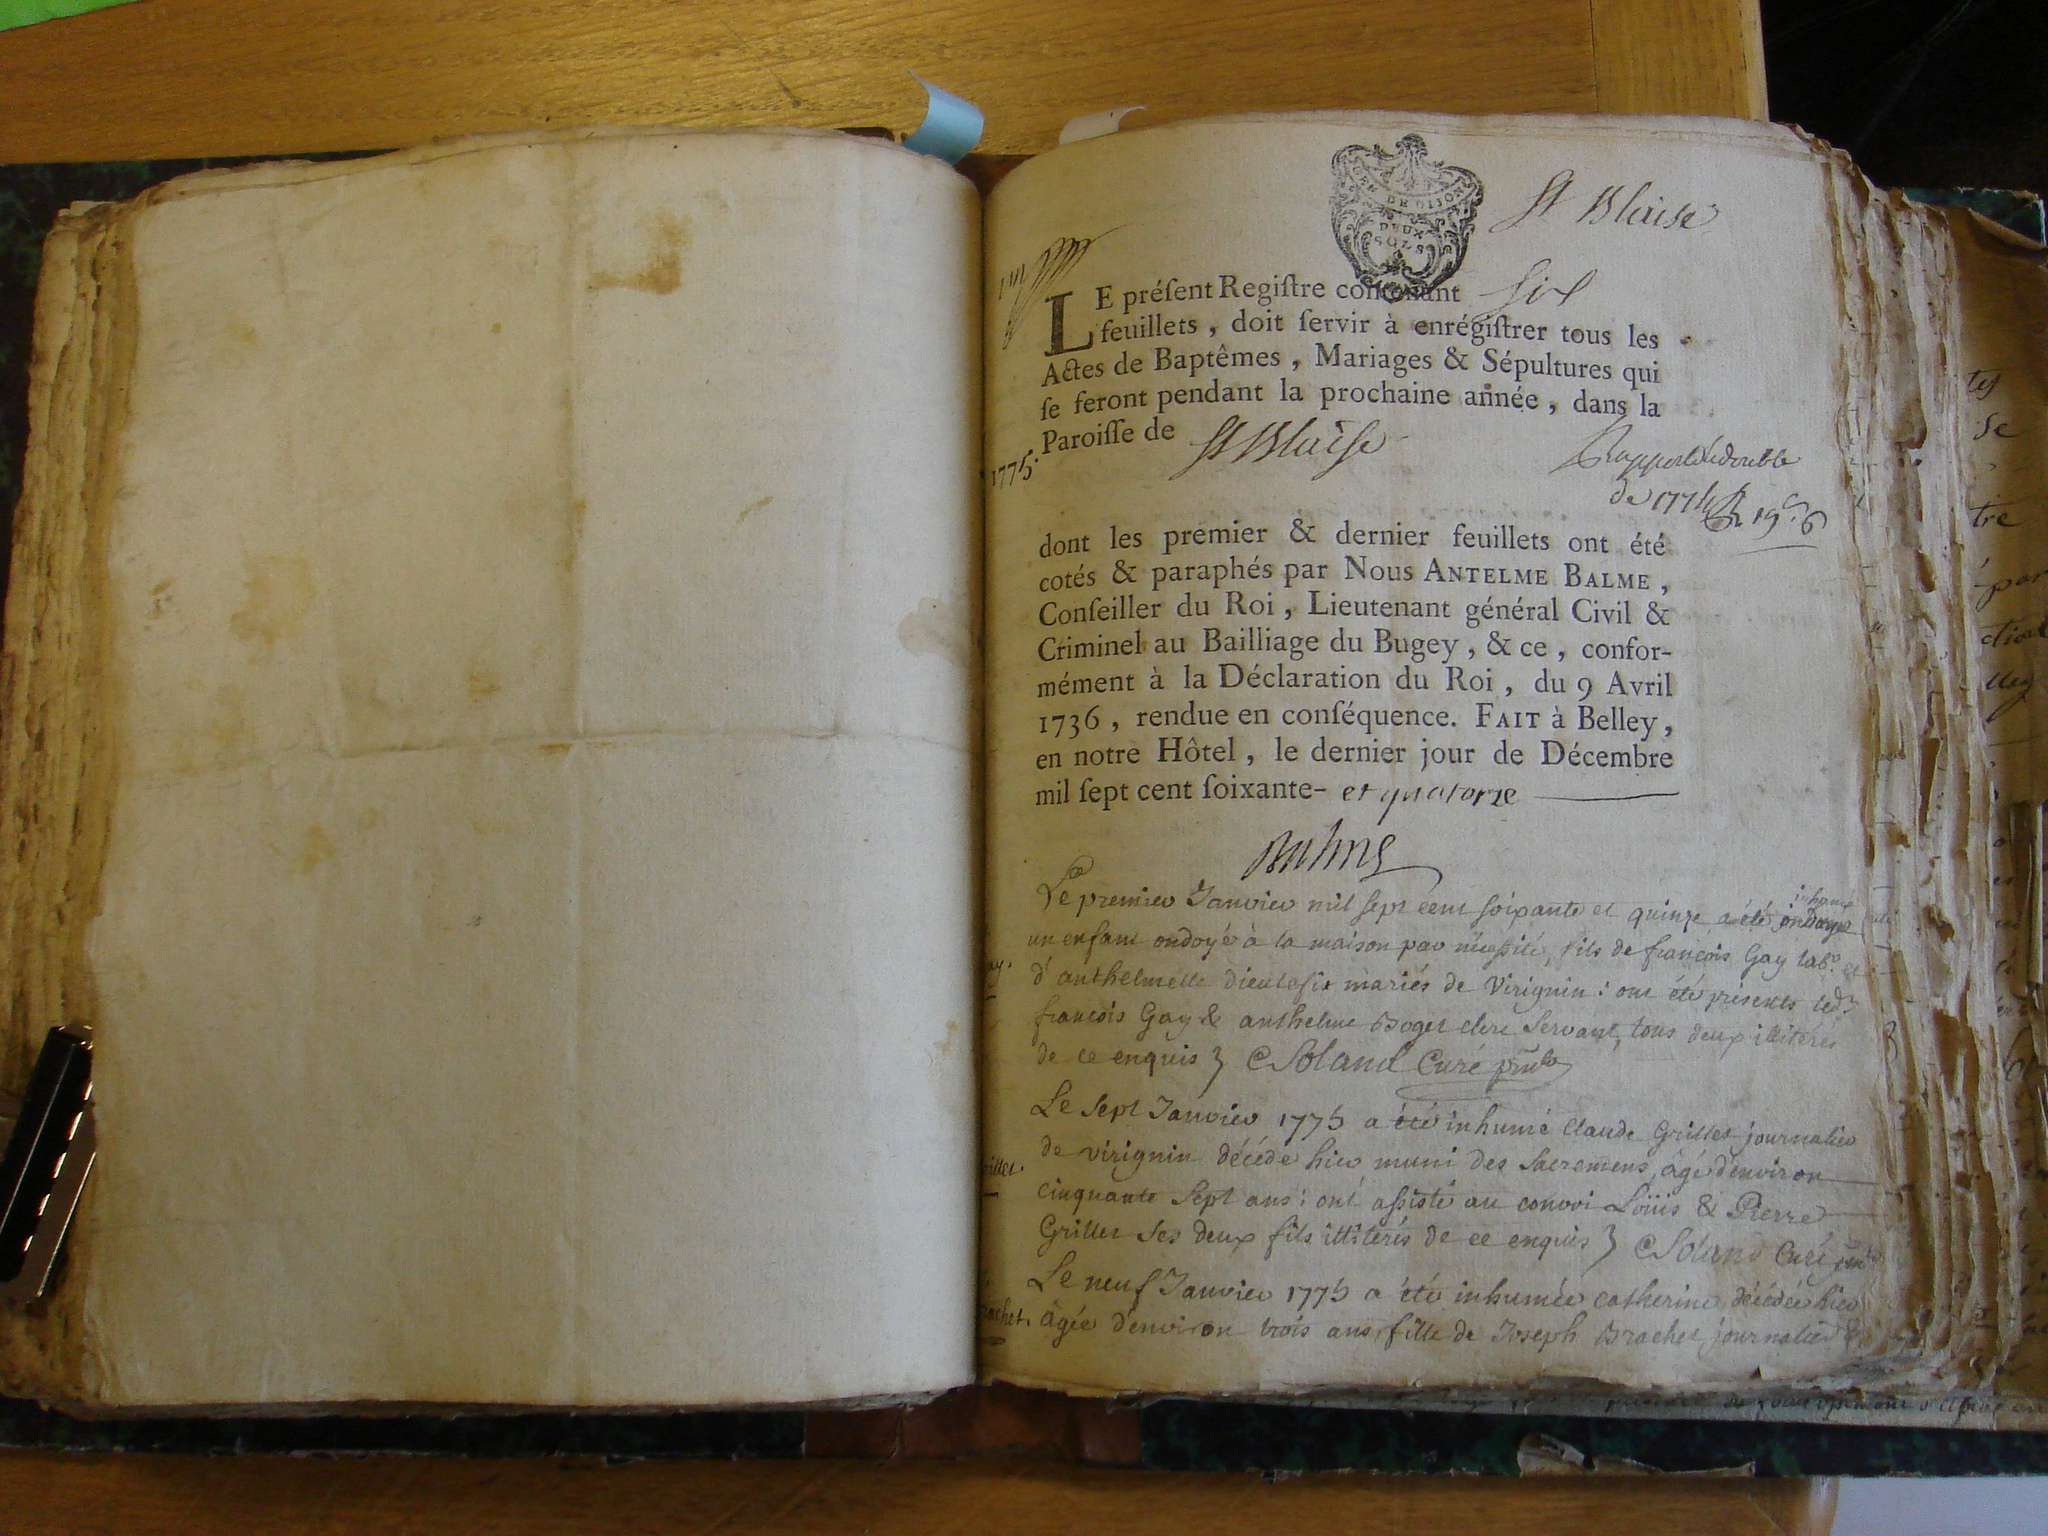 GEN. DE DIJON
DEUX
SOLS
St Blaise
LE préſent Regiſtre contenant six
feuillets, doit ſervir à enrégiſtrer tous les
Actes de Baptêmes, Mariages & Sépultures qui
ſe feront pendant la prochaine année, dans la
Paroiſſe de St Blaise
1775.
Rapporté le double
de 1774
dont les premier & dernier feuillets ont été
cotés & paraphés par Nous ANTELME BALME,
Conſeiller du Roi, Lieutenant général Civil &
Criminel au Bailliage du Bugey, & ce, confor-
mément à la Déclaration du Roi, du 9 Avril
1736, rendue en conſéquence. FAIT à Belley,
en notre Hôtel, le dernier jour de Décembre
mil ſept cent ſoixante- et quatorze
Balme
Le premier Janvier mil sept cent soixante et quinze a été inhumé
un enfant ondoyé à la maison par nécessité, fils de françois Gay lab.r et
d'anthelmette dieulefix mariés de Virignin : ont été présents led.
françois Gay & anthelme Boget clerc servant, tous deux illiterés
de ce enquis Soland Curé
Le sept Janvier 1775 a été inhumé Claude Grillet journalier
de virignin décédé hier muni des sacremens, âgé d'environ
cinquante sept ans : ont assisté au convoi Loüis & Pierre
Grillet ses deux fils illiterés de ce enquis Soland Curé
Le neuf Janvier 1775 a été inhumée catherine décédée hier
âgée d'environ trois ans, fille de Joseph Brachet journalier &